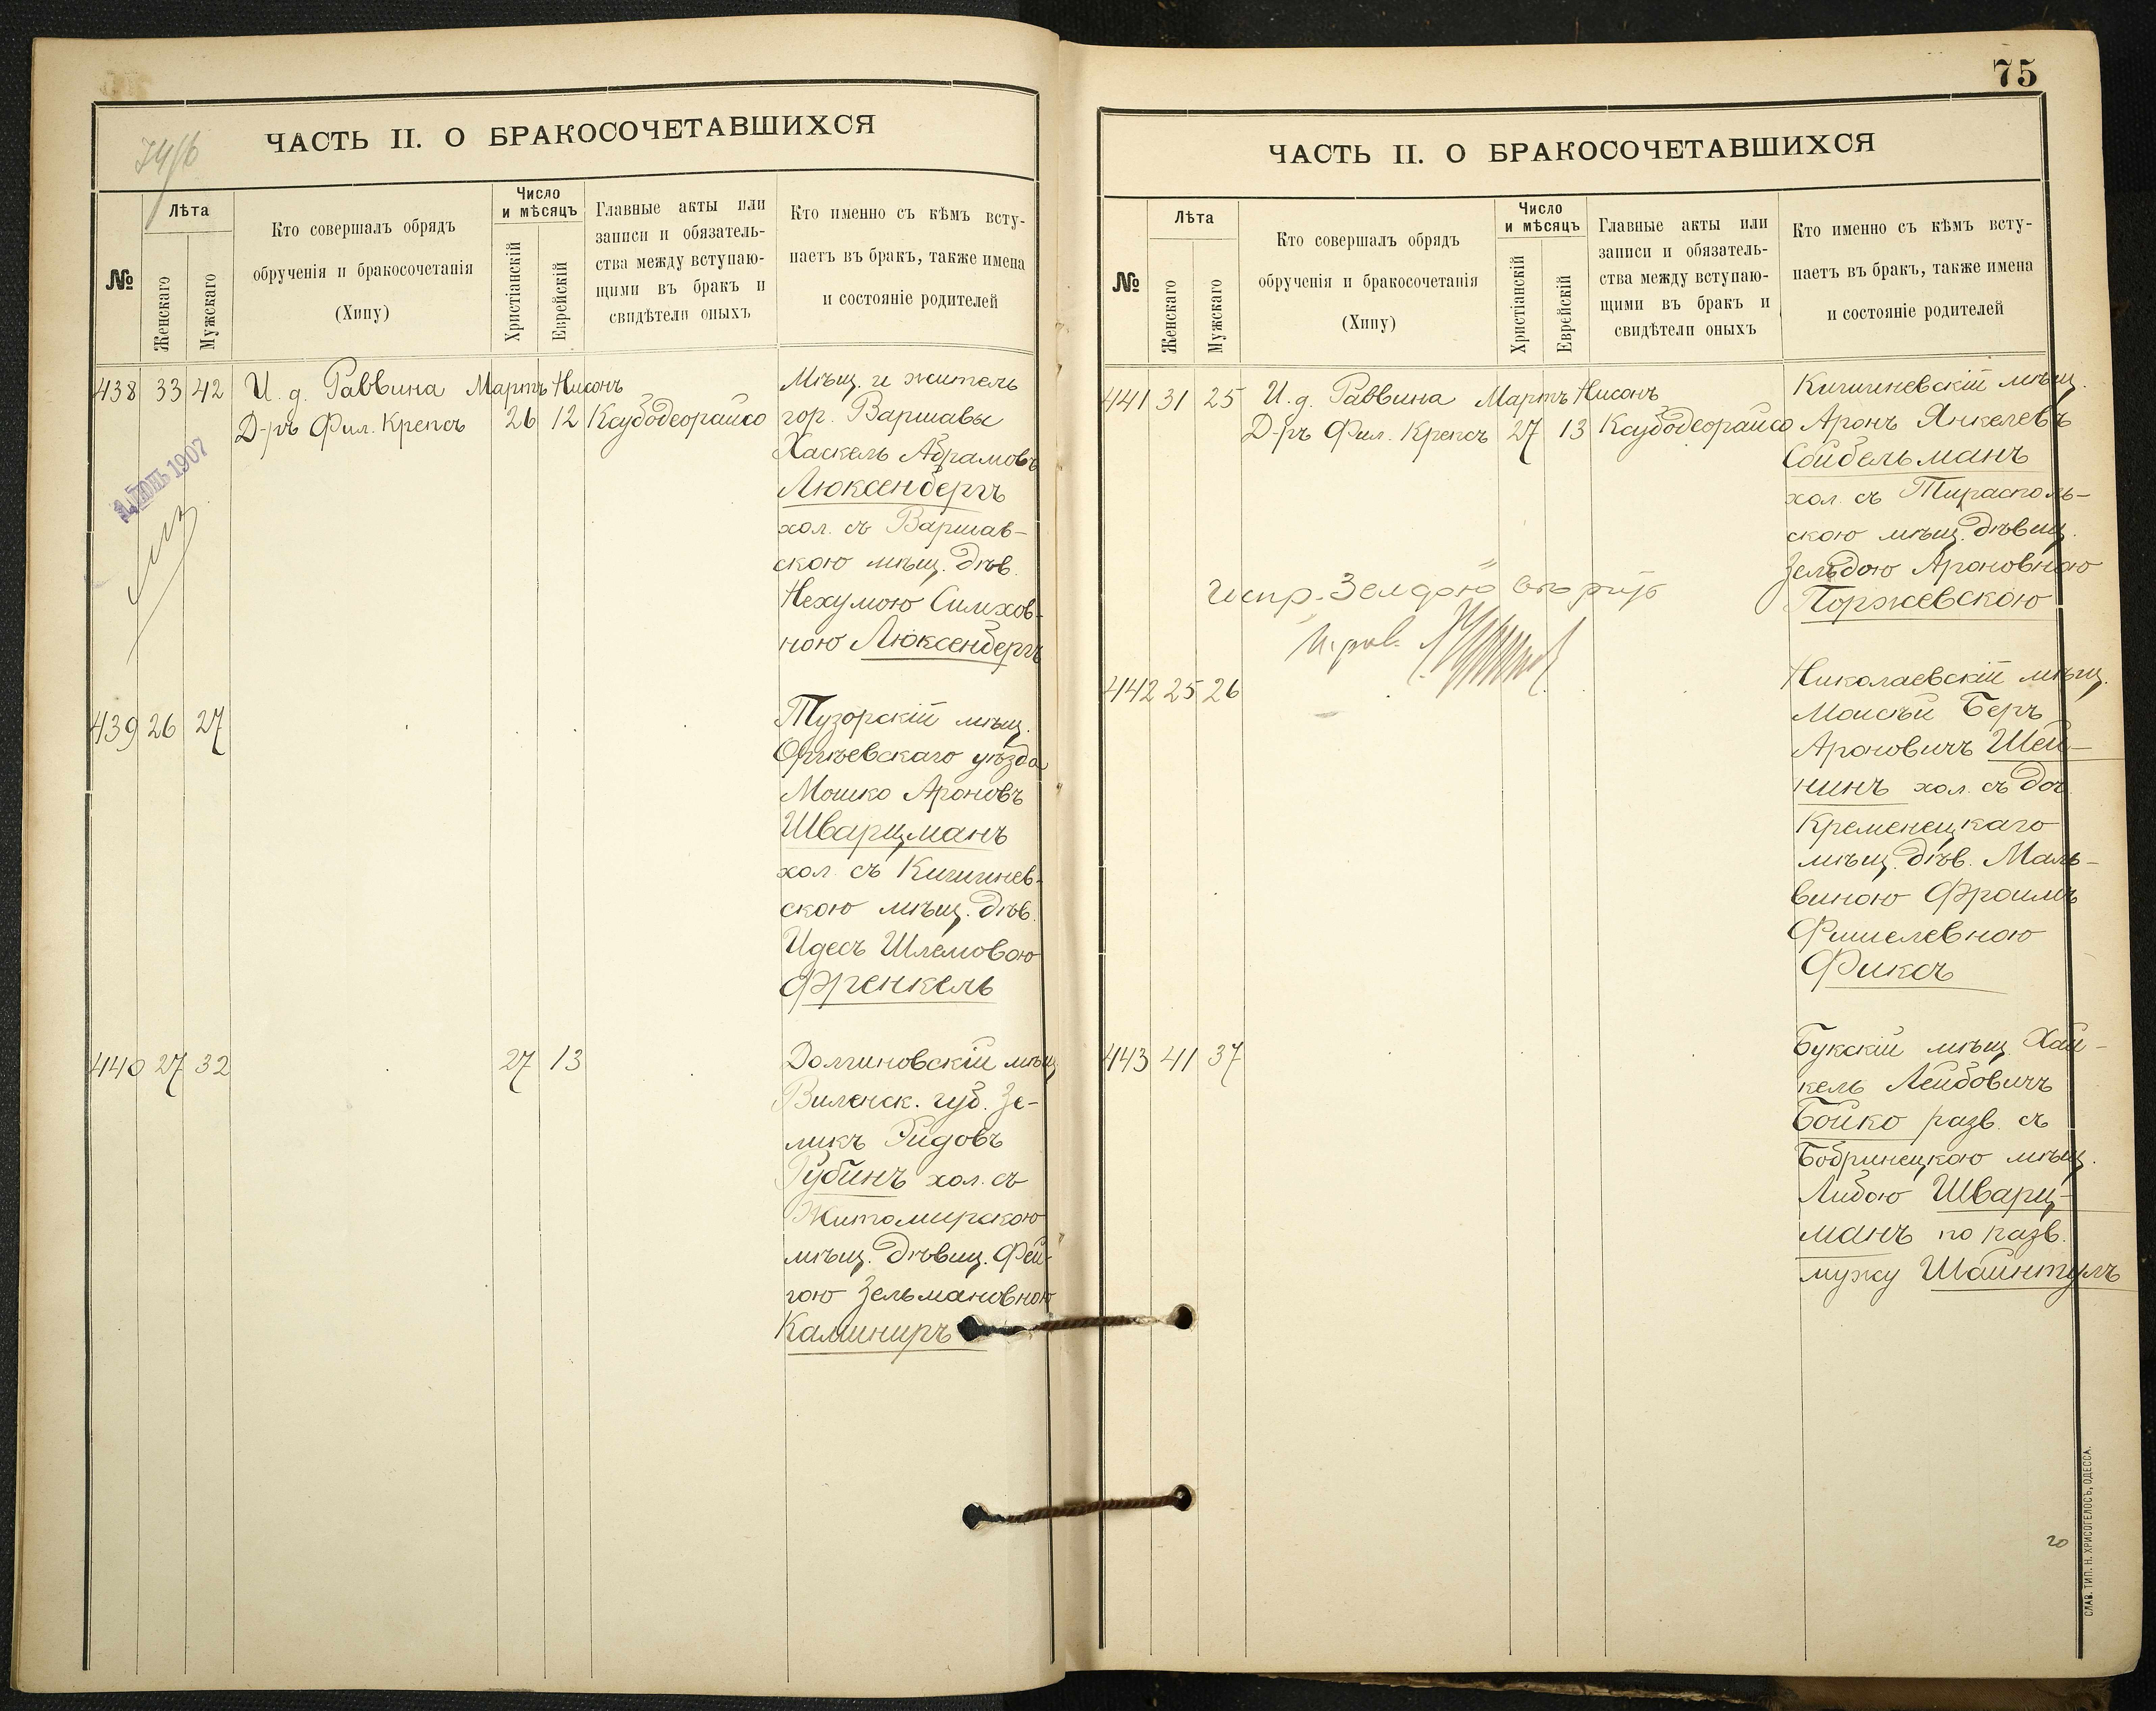 ЧАСТЬ II. О БРАКОСОЧЕТАВШИХСЯ
№
Лѣта
Женскаго
Мужскаго
Кто совершалъ обрядъ
обрученія и бракосочетанія
(Хипу)
Число
и мѣсяцъ
Христіанскій
Еврейскій
Главные акты или
записи и обязатель-
ства между вступаю-
щими въ бракъ и
свидѣтели оныхъ
Кто именно съ кѣмъ всту-
паетъ въ бракъ, также имена
и состояніе родителей
438 33 42 И. д. Раввина Мартъ Нисонъ
Д-ръ Фил. Крепсъ 26 12 Ксубодеорайсо
ІЮНЬ 1907
Мѣщ. и житель
гор. Варшавы
Хаскель Абрамовъ
Люксенбергъ
хол. съ Варшав-
скою мѣщ. дѣв.
Нехумою Симхов-
ною Люксенбергъ
439 26 27
Тузорскій мѣщ.
Оргѣевскаго уѣзда
Мошко Ароновъ
Шварцманъ
хол. съ Кишинев-
скою мѣщ. дѣв.
Идесъ Шлемовою
Френкель
440 27 32 27 13
Долгиновскій мѣщ.
Виленск. губ. Зе-
ликъ Гидовъ
Рубинъ хол. съ
Житомирскою
мѣщ. дѣвиц. Фей-
гою Зельмановною
Калиниръ
75
ЧАСТЬ II. О БРАКОСОЧЕТАВШИХСЯ
№
Лѣта
Женскаго
Мужскаго
Кто совершалъ обрядъ
обрученія и бракосочетанія
(Хипу)
Число
и мѣсяцъ
Христіанскій
Еврейскій
Главные акты или
записи и обязатель-
ства между вступаю-
щими въ бракъ и
свидѣтели оныхъ
Кто именно съ кѣмъ всту-
паетъ въ бракъ, также имена
и состояніе родителей
441 31 25 И. д. Раввина Мартъ Нисонъ
Д-ръ Фил. Крепсъ 27 13 Ксубодеорайсо
Кишиневскій мѣщ.
Аронъ Янкелевъ
Сойбельманъ
хол. съ Тирасполь-
скою мѣщ. дѣвиц.
Зельдою Ароновною
Поржевскою
испр. Зелдою
442 25 26
Николаевскій мѣщ.
Моисей Беръ
Ароновичъ Шей-
нинъ хол. съ доч.
Кременецкаго
мѣщ. дѣв. Маль-
виною Фроимъ
Фишелевною
Фиксъ
443 41 37
Букскій мѣщ. Хай-
кель Лейбовичъ
Бойко разв. съ
Бобринецкою мѣщ.
Либою Шварц-
манъ по разв.
мужу Шайнтулъ
СЛАВ. ТИП. Н. ХРИСОГЕЛОСЪ, ОДЕССА.